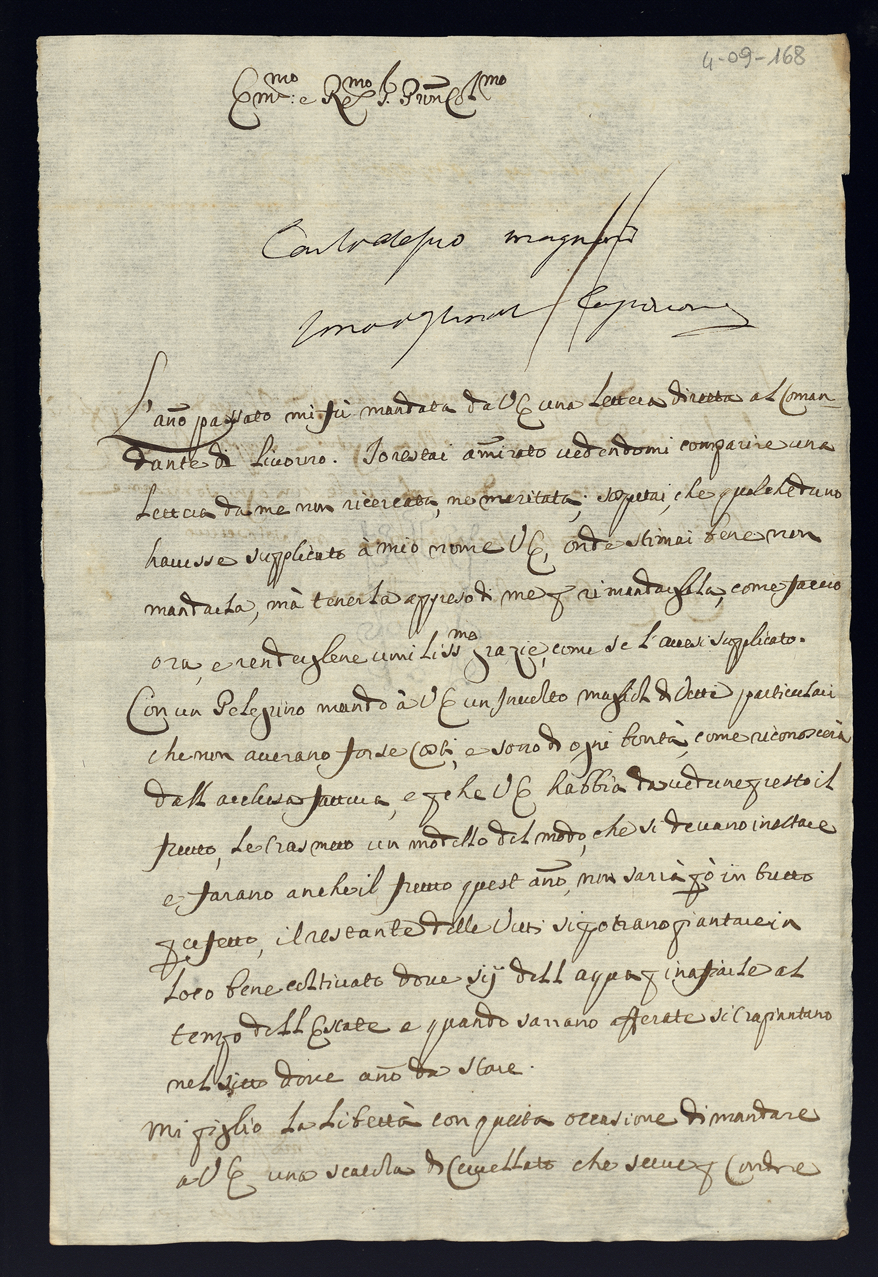 4-09-168
Em.mo e R.mo S.r P.ron Col.mo
L'año passato mi fù mandata da VE una Lettera diretta al Coman-
dante di Livorno. Io restai amirato vedendomi comparire una
Lettera da me non ricercata, ne meritata; sospetai, che qualcheduno
havesse supplicato à mio nome VE, onde stimai bene non
mandarla, mà tenerla appreso di me p rimandargliela, come faccio
ora, e renderglene umiliss.me grazie, come se l'avesi supplicato.
Con un Pelegrino mando à VE un Involto di Viti particulari
che non averano forse costi, e sono di ogni bontà, come riconoscerà
dall acclusa fattura, e p che VE habbia da vederne presto il
frutto, Le trasmetto un modello del modo, che si devano inestare
e farano anche il frutto quest año, non sarià pò in tutto
perfetto, il restante delle Viti si potrano piantare in
loco bene coltivato dove sij dell aqua p inafiarle al
tempo dell Estate e quando sarano afferate si trapiantano
nel sitto dove año da stare.
Mi piglio La Libertà con questa occasione di mandare
a VE una scatola di Cervellato che serve p Condire